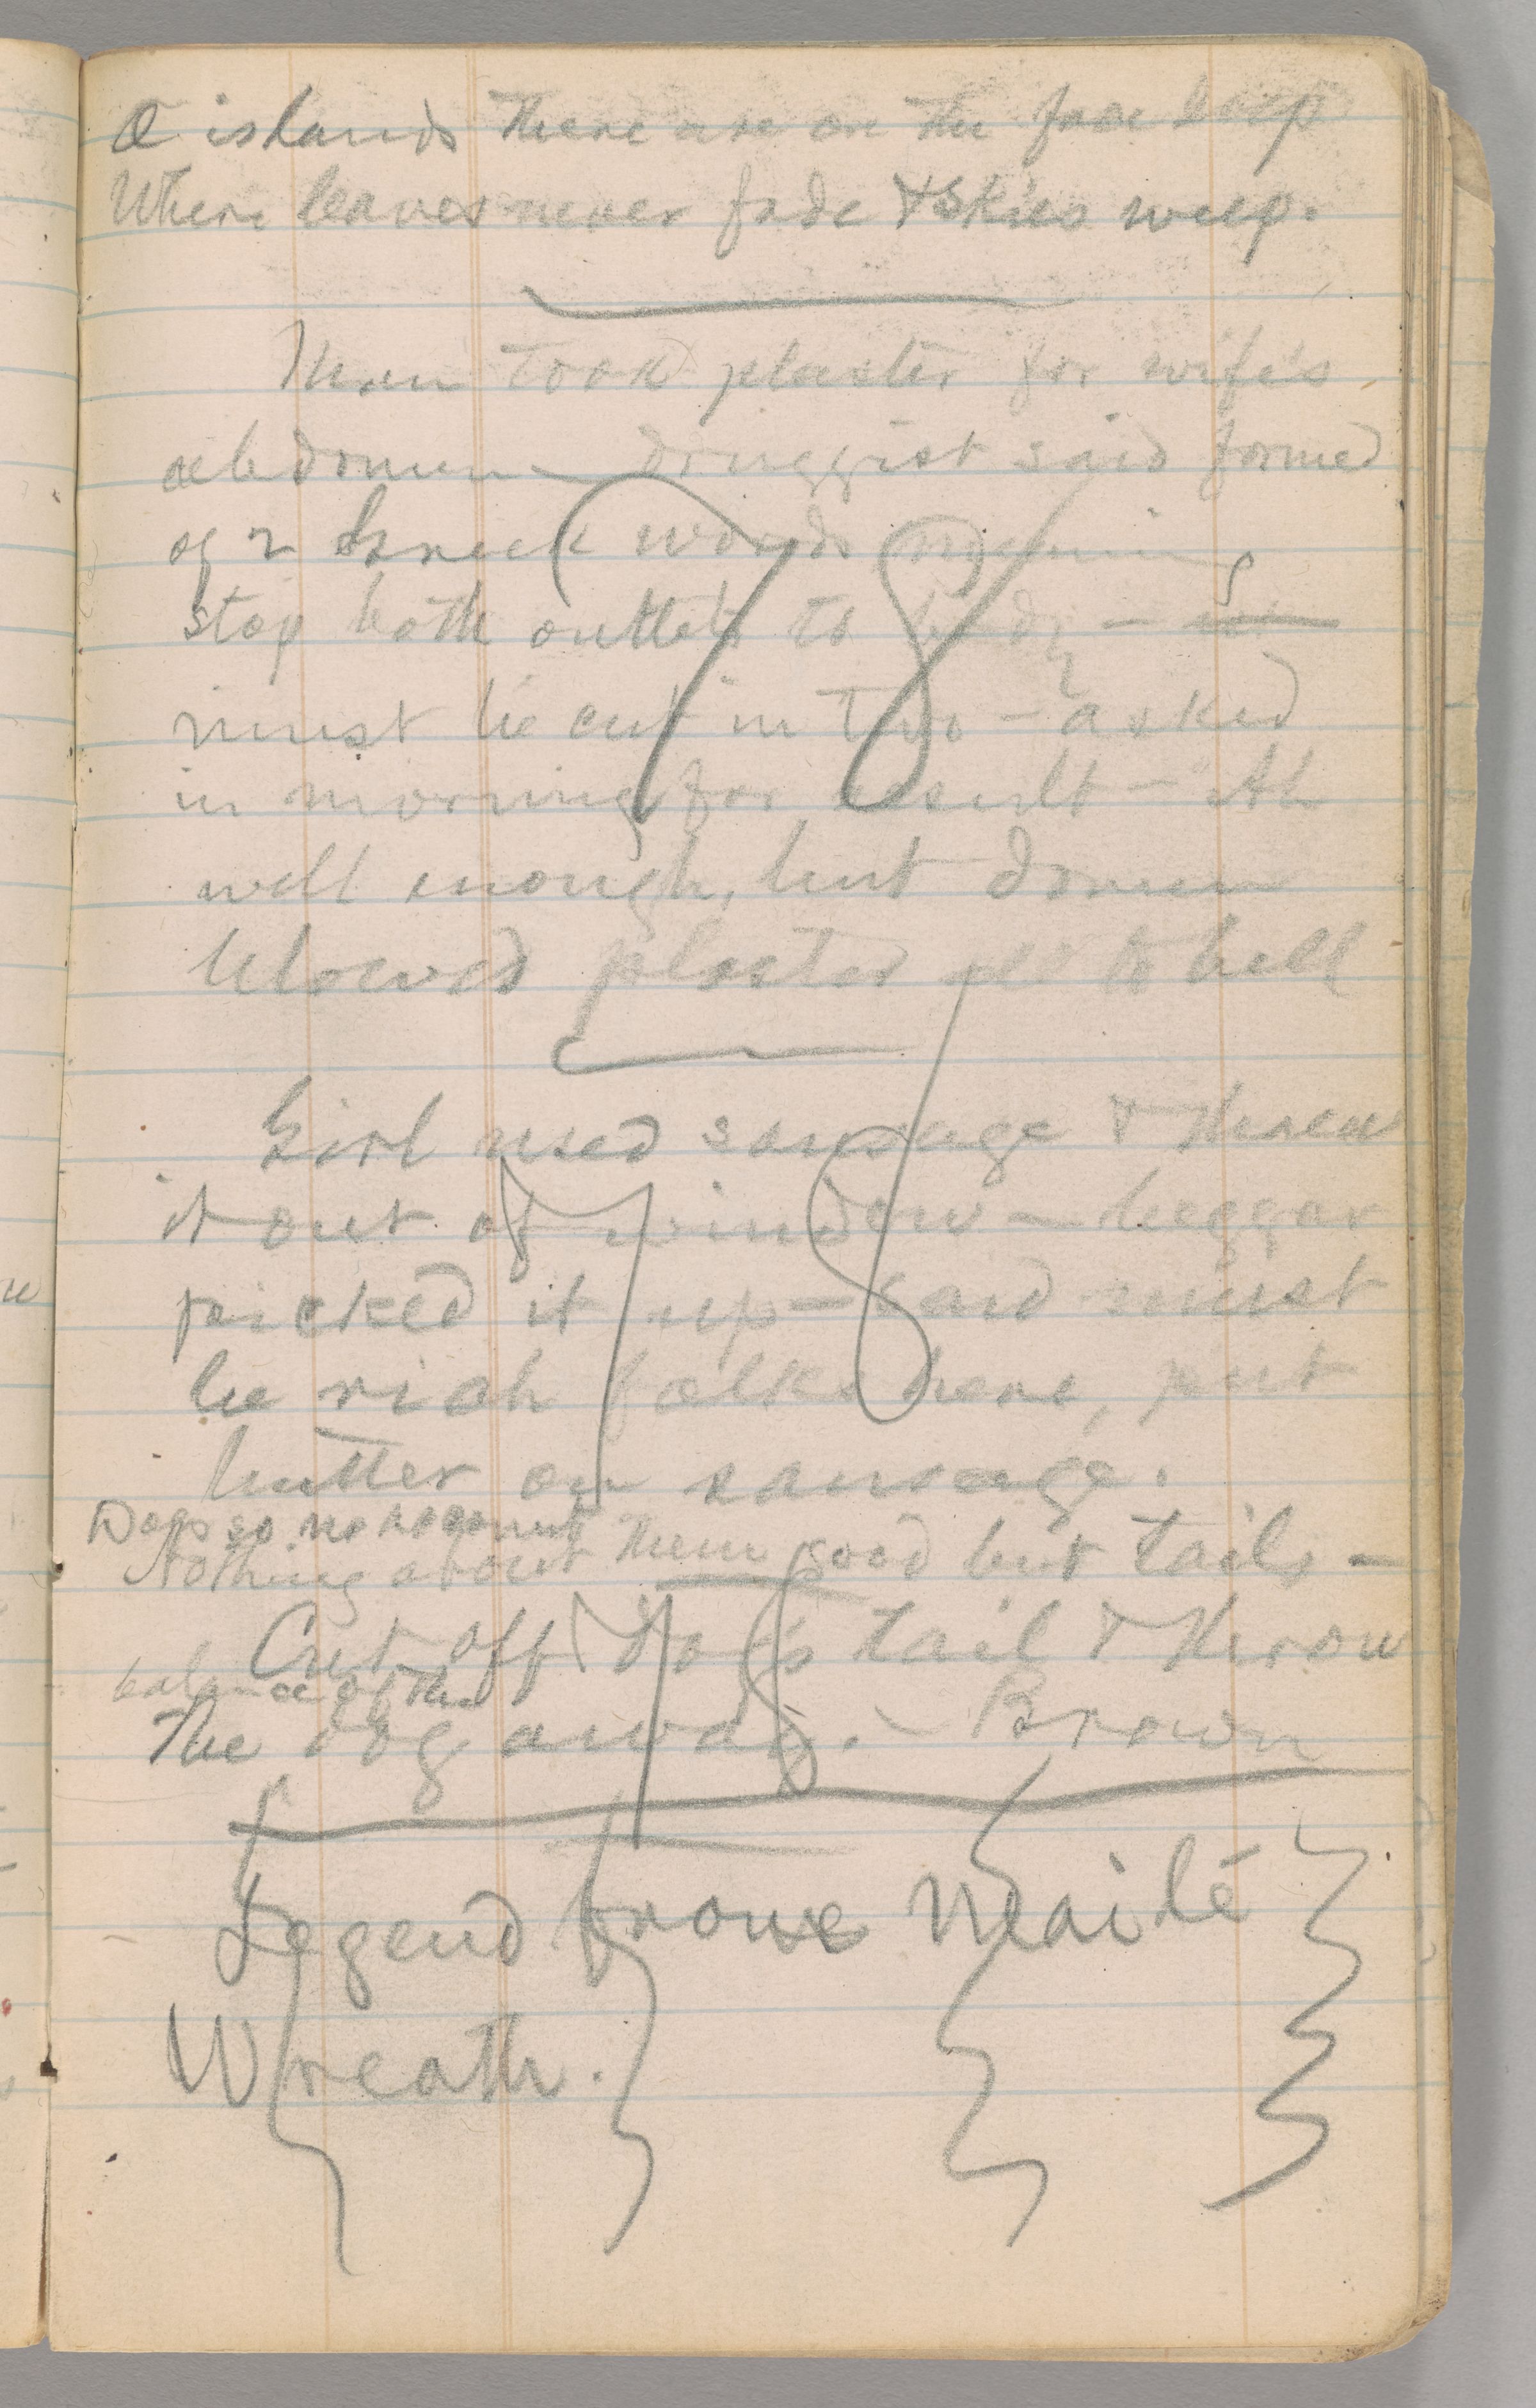 O islands there are on the face deep
Where leaves never fade & skies weep.
Man took plaster for wife's
abdomen – druggist said formed
of 2 Greek words meaning
stop both outlets to body –
must be cut in two – asked
in morning for result – Ab
well enough, but domen
blowed plaster all to hell
Girl used sausage & threw
it out of window – beggar
picked it up – said must
be rich folks here, put
butter on sausage.
Dogs so no account
Nothing about them good but tails –
Cut off dog's tail & throw
balance of the
The dog away. – Brown
Legend from Mailé
Wreath.